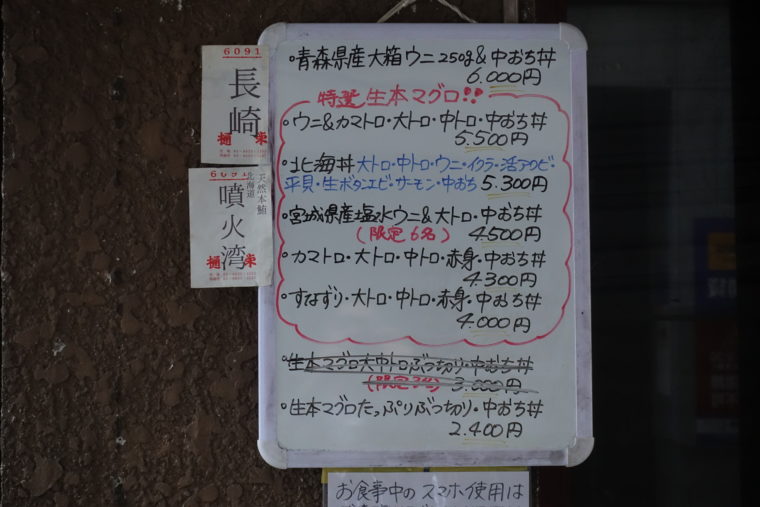 ・青森県産大箱ウニ250g&中おち丼
6.000円
特選 生本マグロ!!
・ウニ&カマトロ・大トロ・中トロ・中おち丼
5.500円
・北海丼 大トロ・中トロ・ウニ・イクラ・活アワビ・
平貝・生ボタンエビ・サーモン・中おち 5.300円
・宮城県産塩水ウニ&大トロ・中おち丼
(限定6名) 4.500円
・カマトロ・大トロ・中トロ・赤身・中おち丼
4.300円
・すなずり・大トロ・中トロ・赤身・中おち丼
4.000円
・生本マグロ大中トロぶつ切り・中おち丼
3.000円
・生本マグロたっぷりぶつ切り・中おち丼
2.400円
6091
長崎
樋栄
6091
天然本鮪
北海道
噴火湾
樋栄
お食事中のスマホ使用は